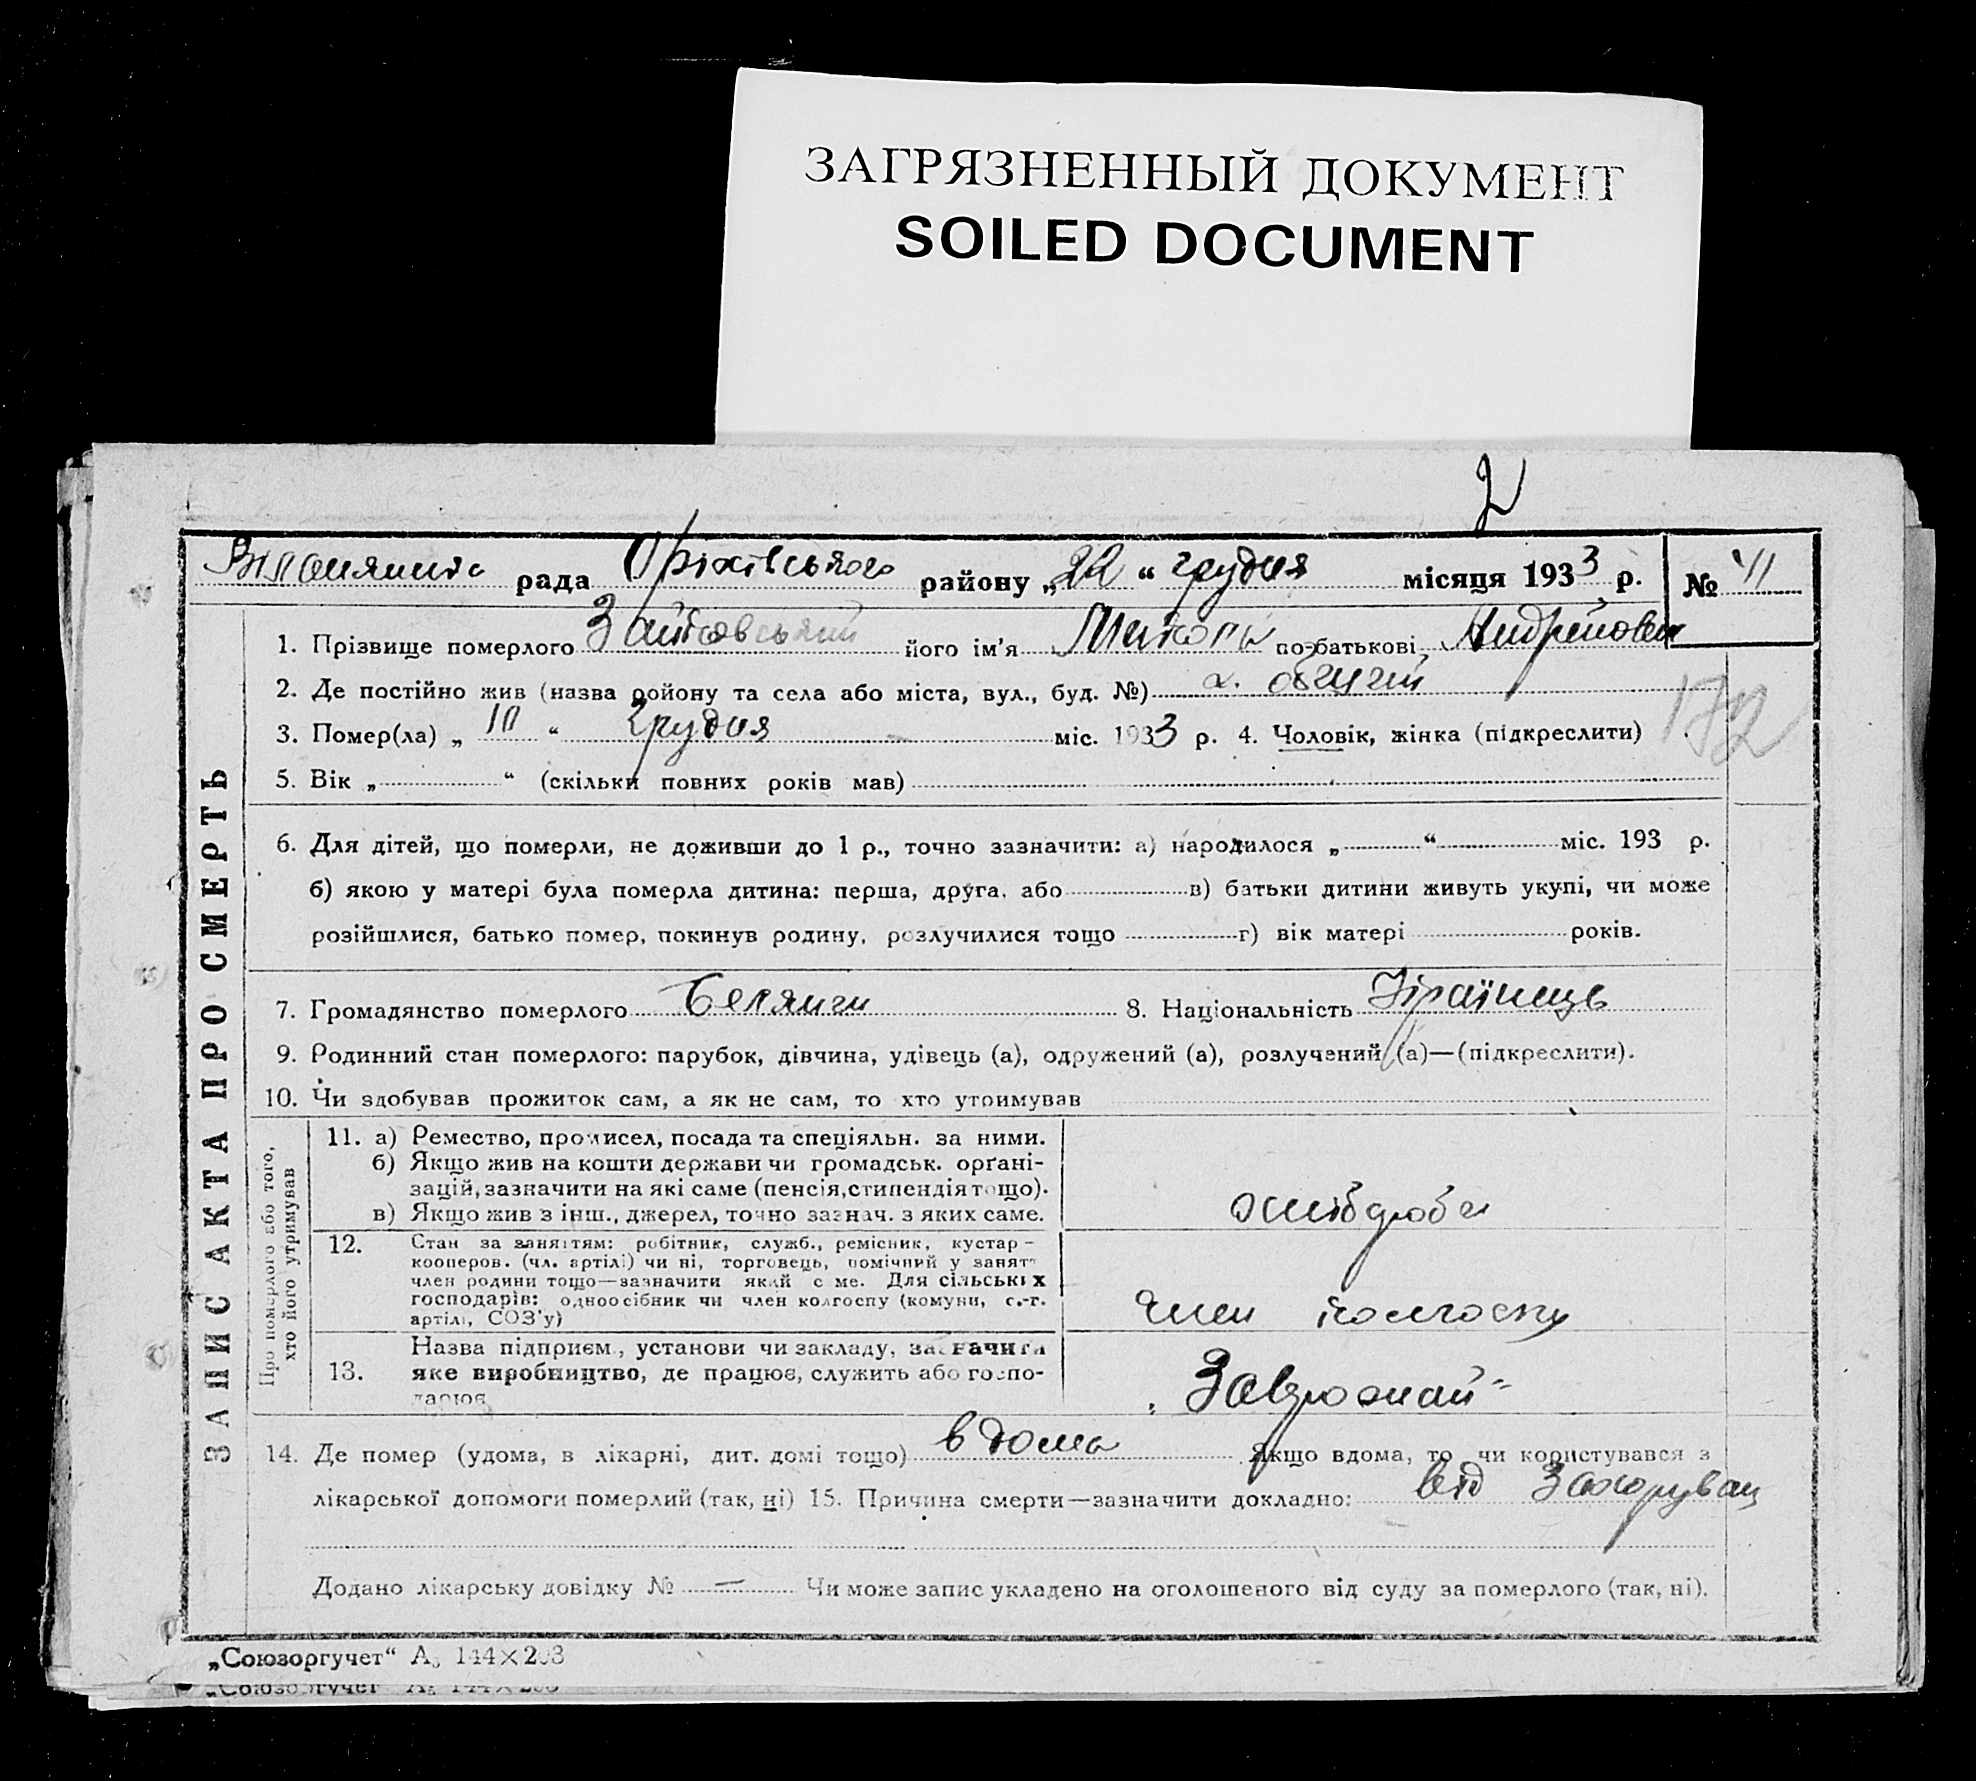 ЗАГРЯЗНЕННЫЙ ДОКУМЕНТ
SOILED DOCUMENT
2
рада Оріхівського району „22“ грудня місяця 1933 р. № 41
1. Прізвище померлого його ім'я по-батькові
2. Де постійно жив (назва району та села або міста, вул., буд. №)
3. Помер(ла) „10“ Грудня міс. 1933 р. 4. Чоловік, жінка (підкреслити)
172
5. Вік „ “ (скільки повних років мав)
6. Для дітей, що померли, не доживши до 1 р., точно зазначити: а) народилося „ “ міс. 193 р.
б) якою у матері була померла дитина: перша, друга, або в) батьки дитини живуть укупі, чи може
розійшлися, батько помер, покинув родину, розлучилися тощо г) вік матері років.
7. Громадянство померлого Селянин 8. Національність Українець
9. Родинний стан померлого: парубок, дівчина, удівець (а), одружений (а), розлучений (а)—(підкреслити).
10. Чи здобував прожиток сам, а як не сам, то хто утримував
ЗАПИС АКТА ПРО СМЕРТЬ
Про померлого або того,
хто його утримував
11. а) Ремество, промисел, посада та спеціяльн. за ними.
б) Якщо жив на кошти держави чи громадськ. орґані-
зацій, зазначити на які саме (пенсія, стипендія тощо).
в) Якщо жив з інш., джерел, точно зазнач. з яких саме.
хлібороб
12. Стан за заняттям: робітник, служб., ремісник, кустар -
кооперов. (чл. артілі) чи ні, торговець, помічний у занятт
член родини тощо—зазначити який с ме. Для сільських
господарів: одноосібник чи член колгоспу (комуни, с.-г.
артілі, СОЗ'у)
член колгоспу
13. Назва підприєм., установи чи закладу, зазначити
яке виробництво, де працює, служить або госпо-
дарює
„Заврожай“
14. Де помер (удома, в лікарні, дит. домі тощо) вдома Якщо вдома, то чи користувався з
лікарської допомоги померлий (так, ні) 15. Причина смерти—зазначити докладно: від
Додано лікарську довідку № — Чи може запис укладено на оголошеного від суду за померлого (так, ні).
„Союзоргучет“ А₅ 144×203
„Союзоргучет“ А₅ 144×203